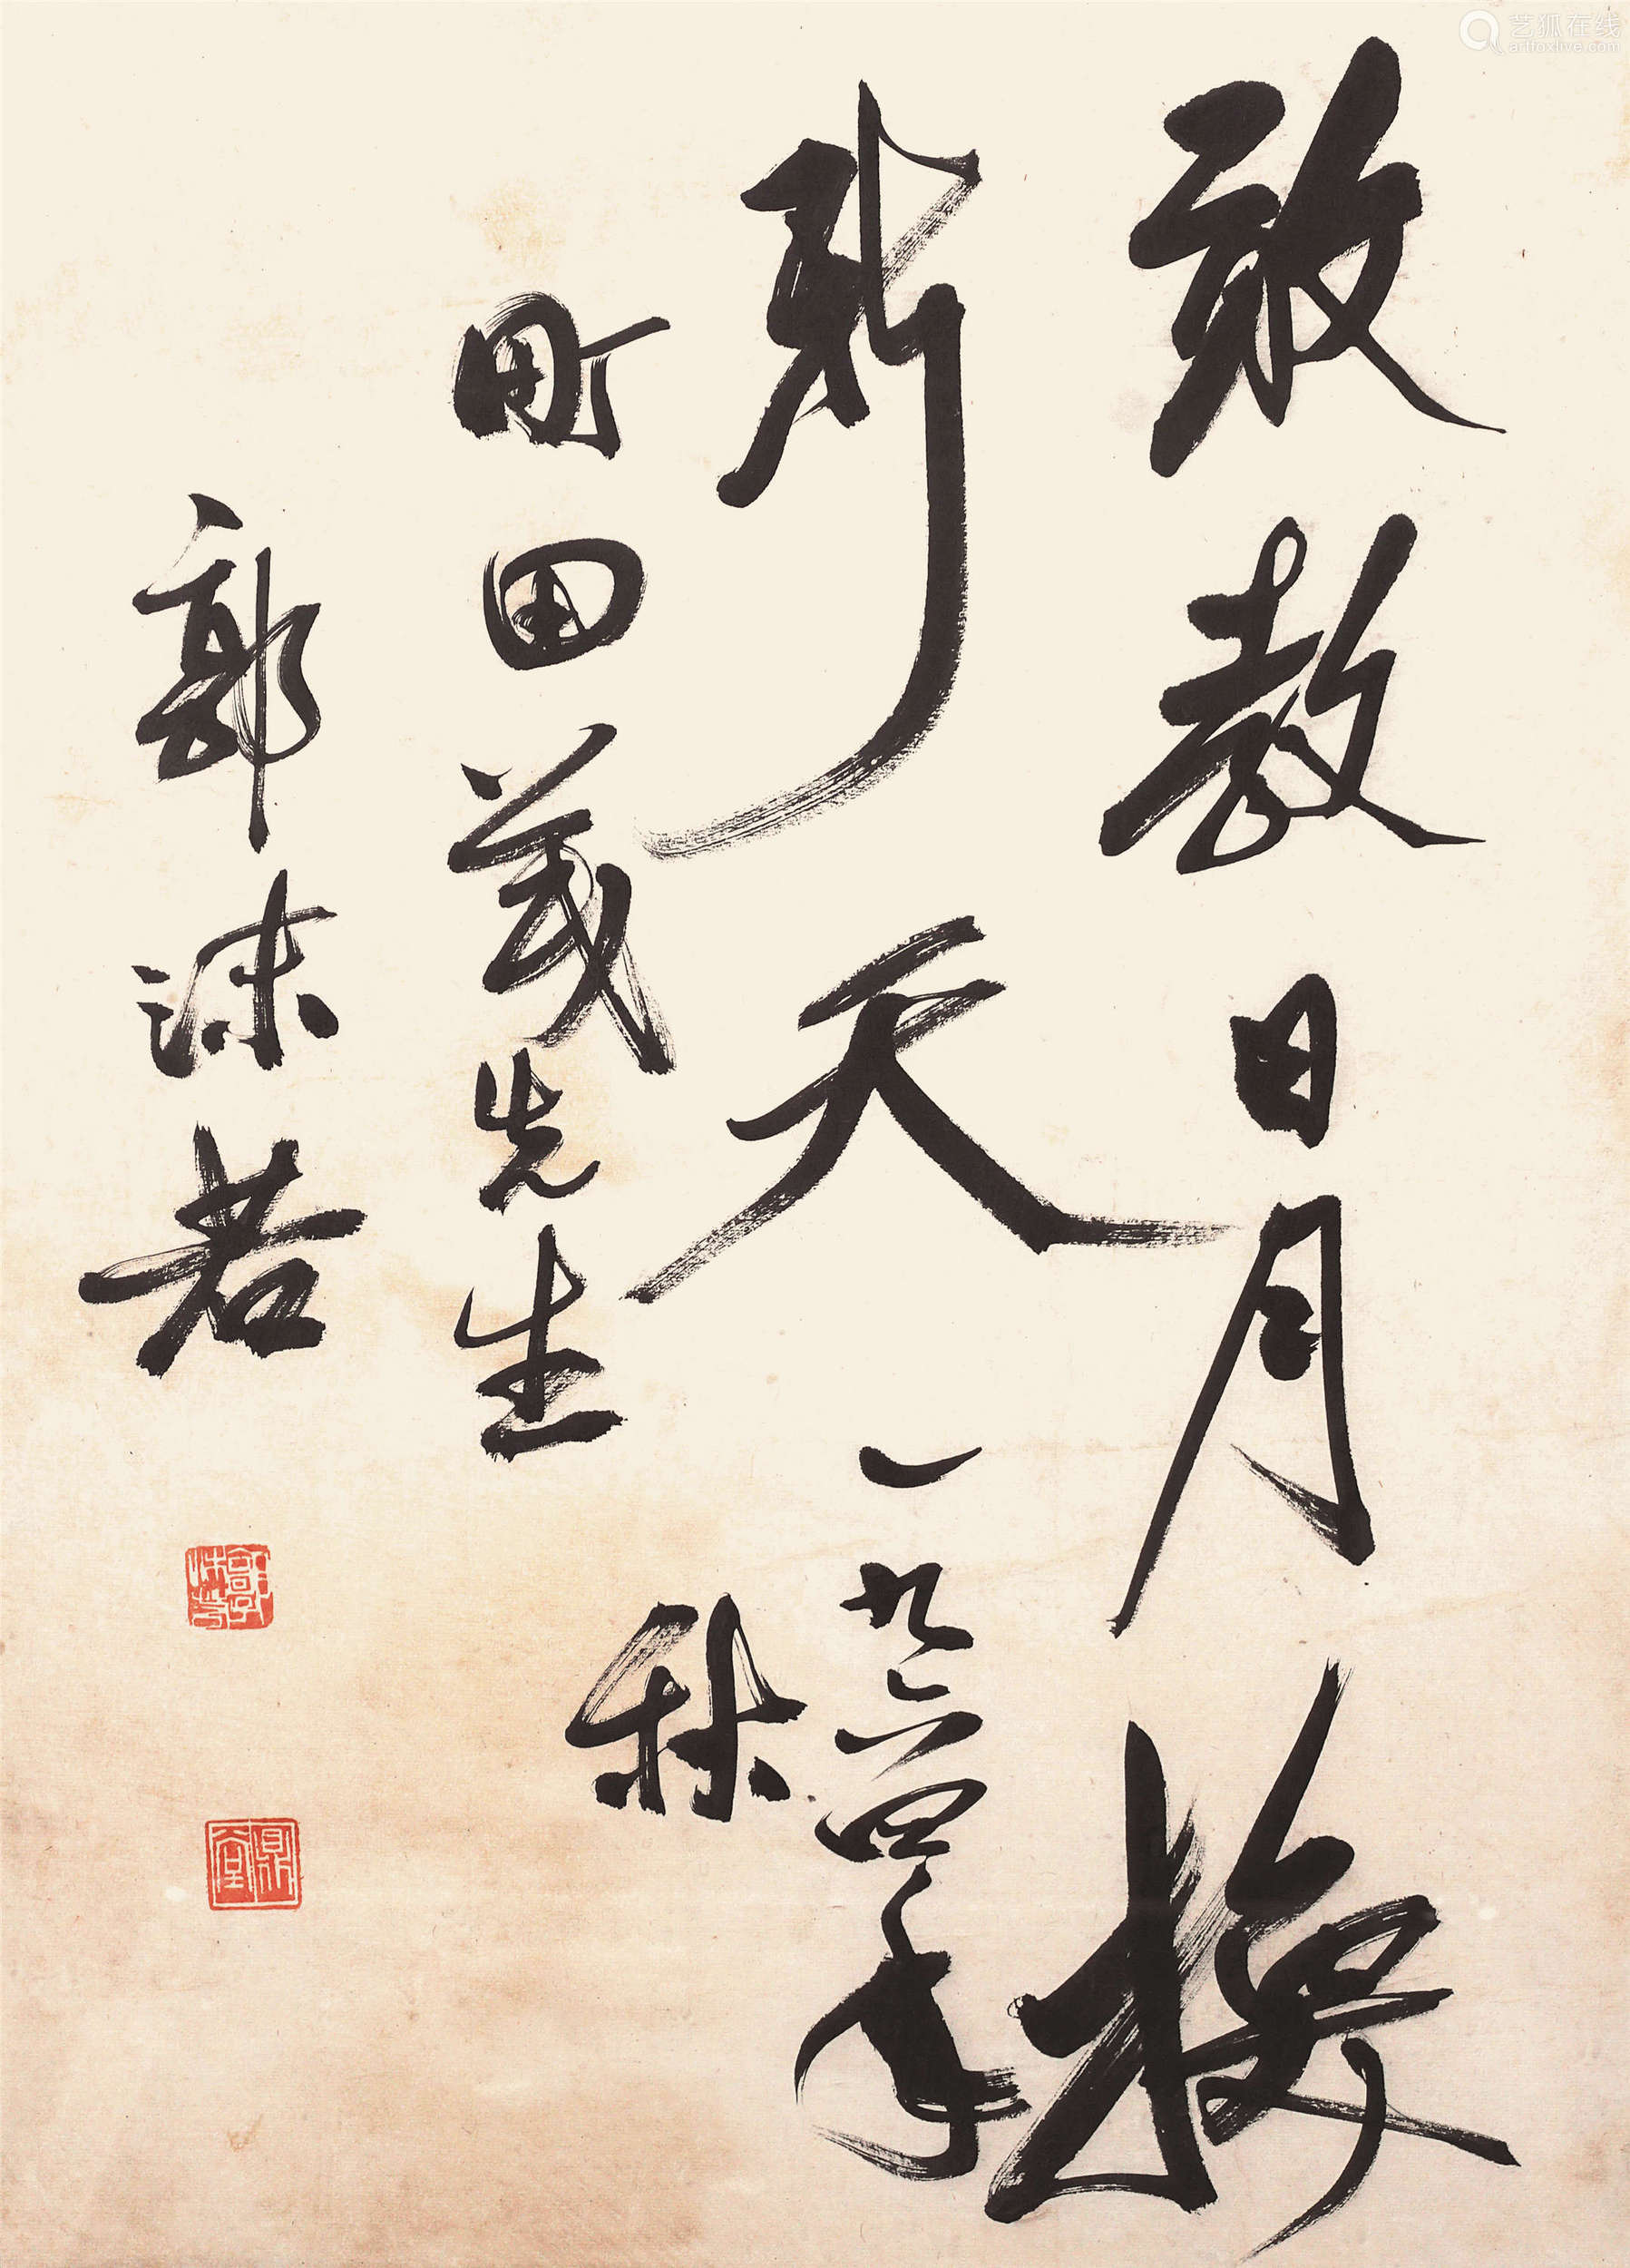 敢教日月换
新天 一九六四年
秋
町田茂先生
郭沫若
郭沫若
鼎堂
艺狐在线
artfoxlive.com